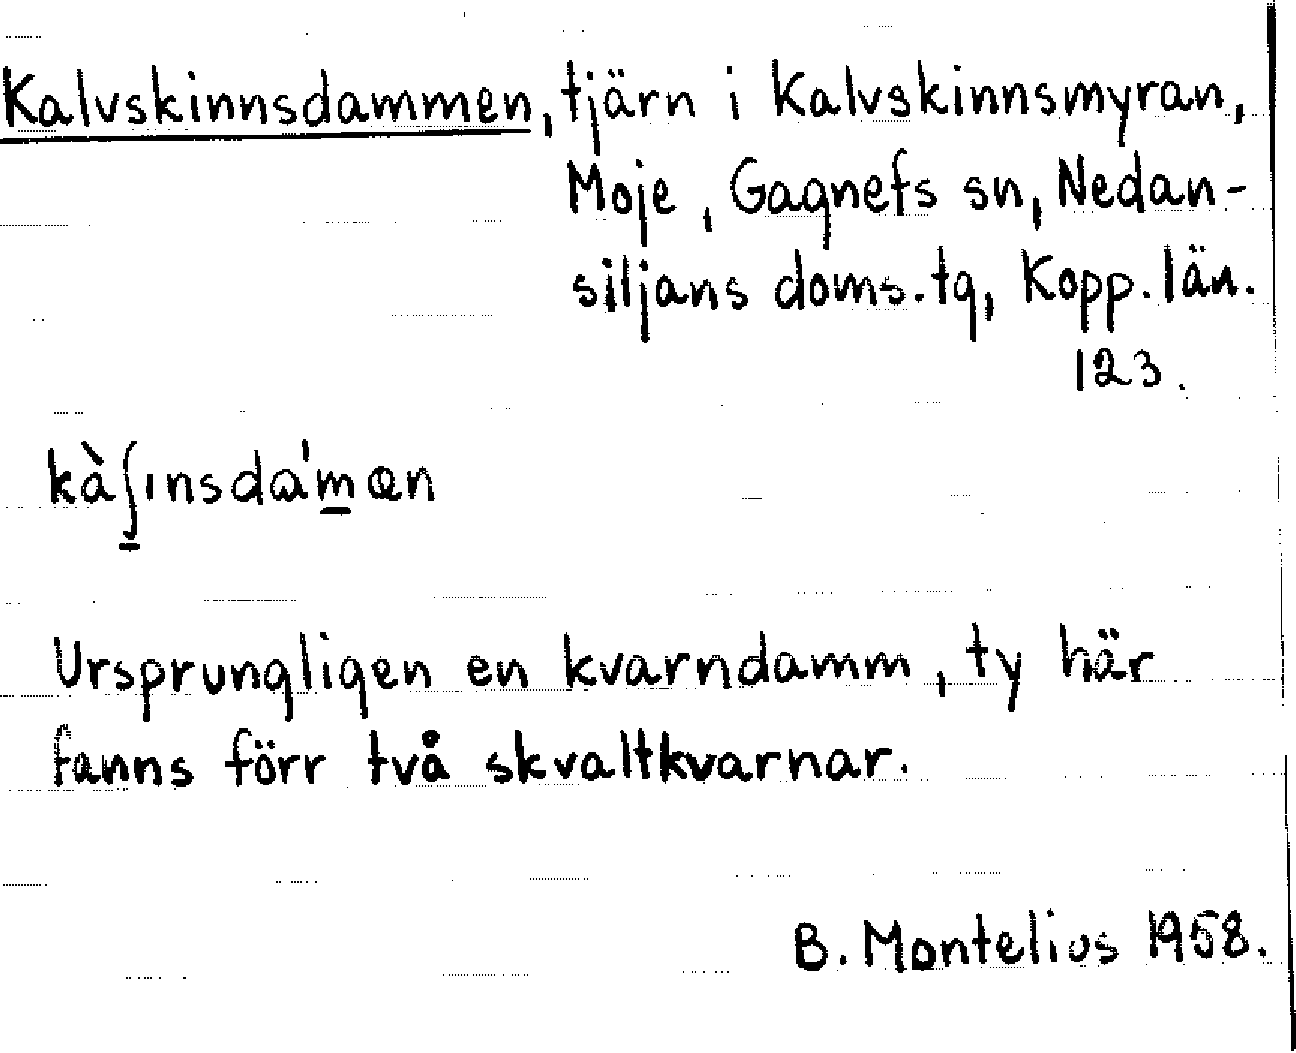 Kalvskinnsdammen, tjärn i Kalvskinnsmyran,
Moje, Gagnefs sn, Nedan-
siljans doms.tg, Kopp. län.
123.
kàʃınsdɑ'm̲ɶn
Ursprungligen en kvarndamm, ty här
fanns förr två skvaltkvarnar.
B. Montelius 1958.